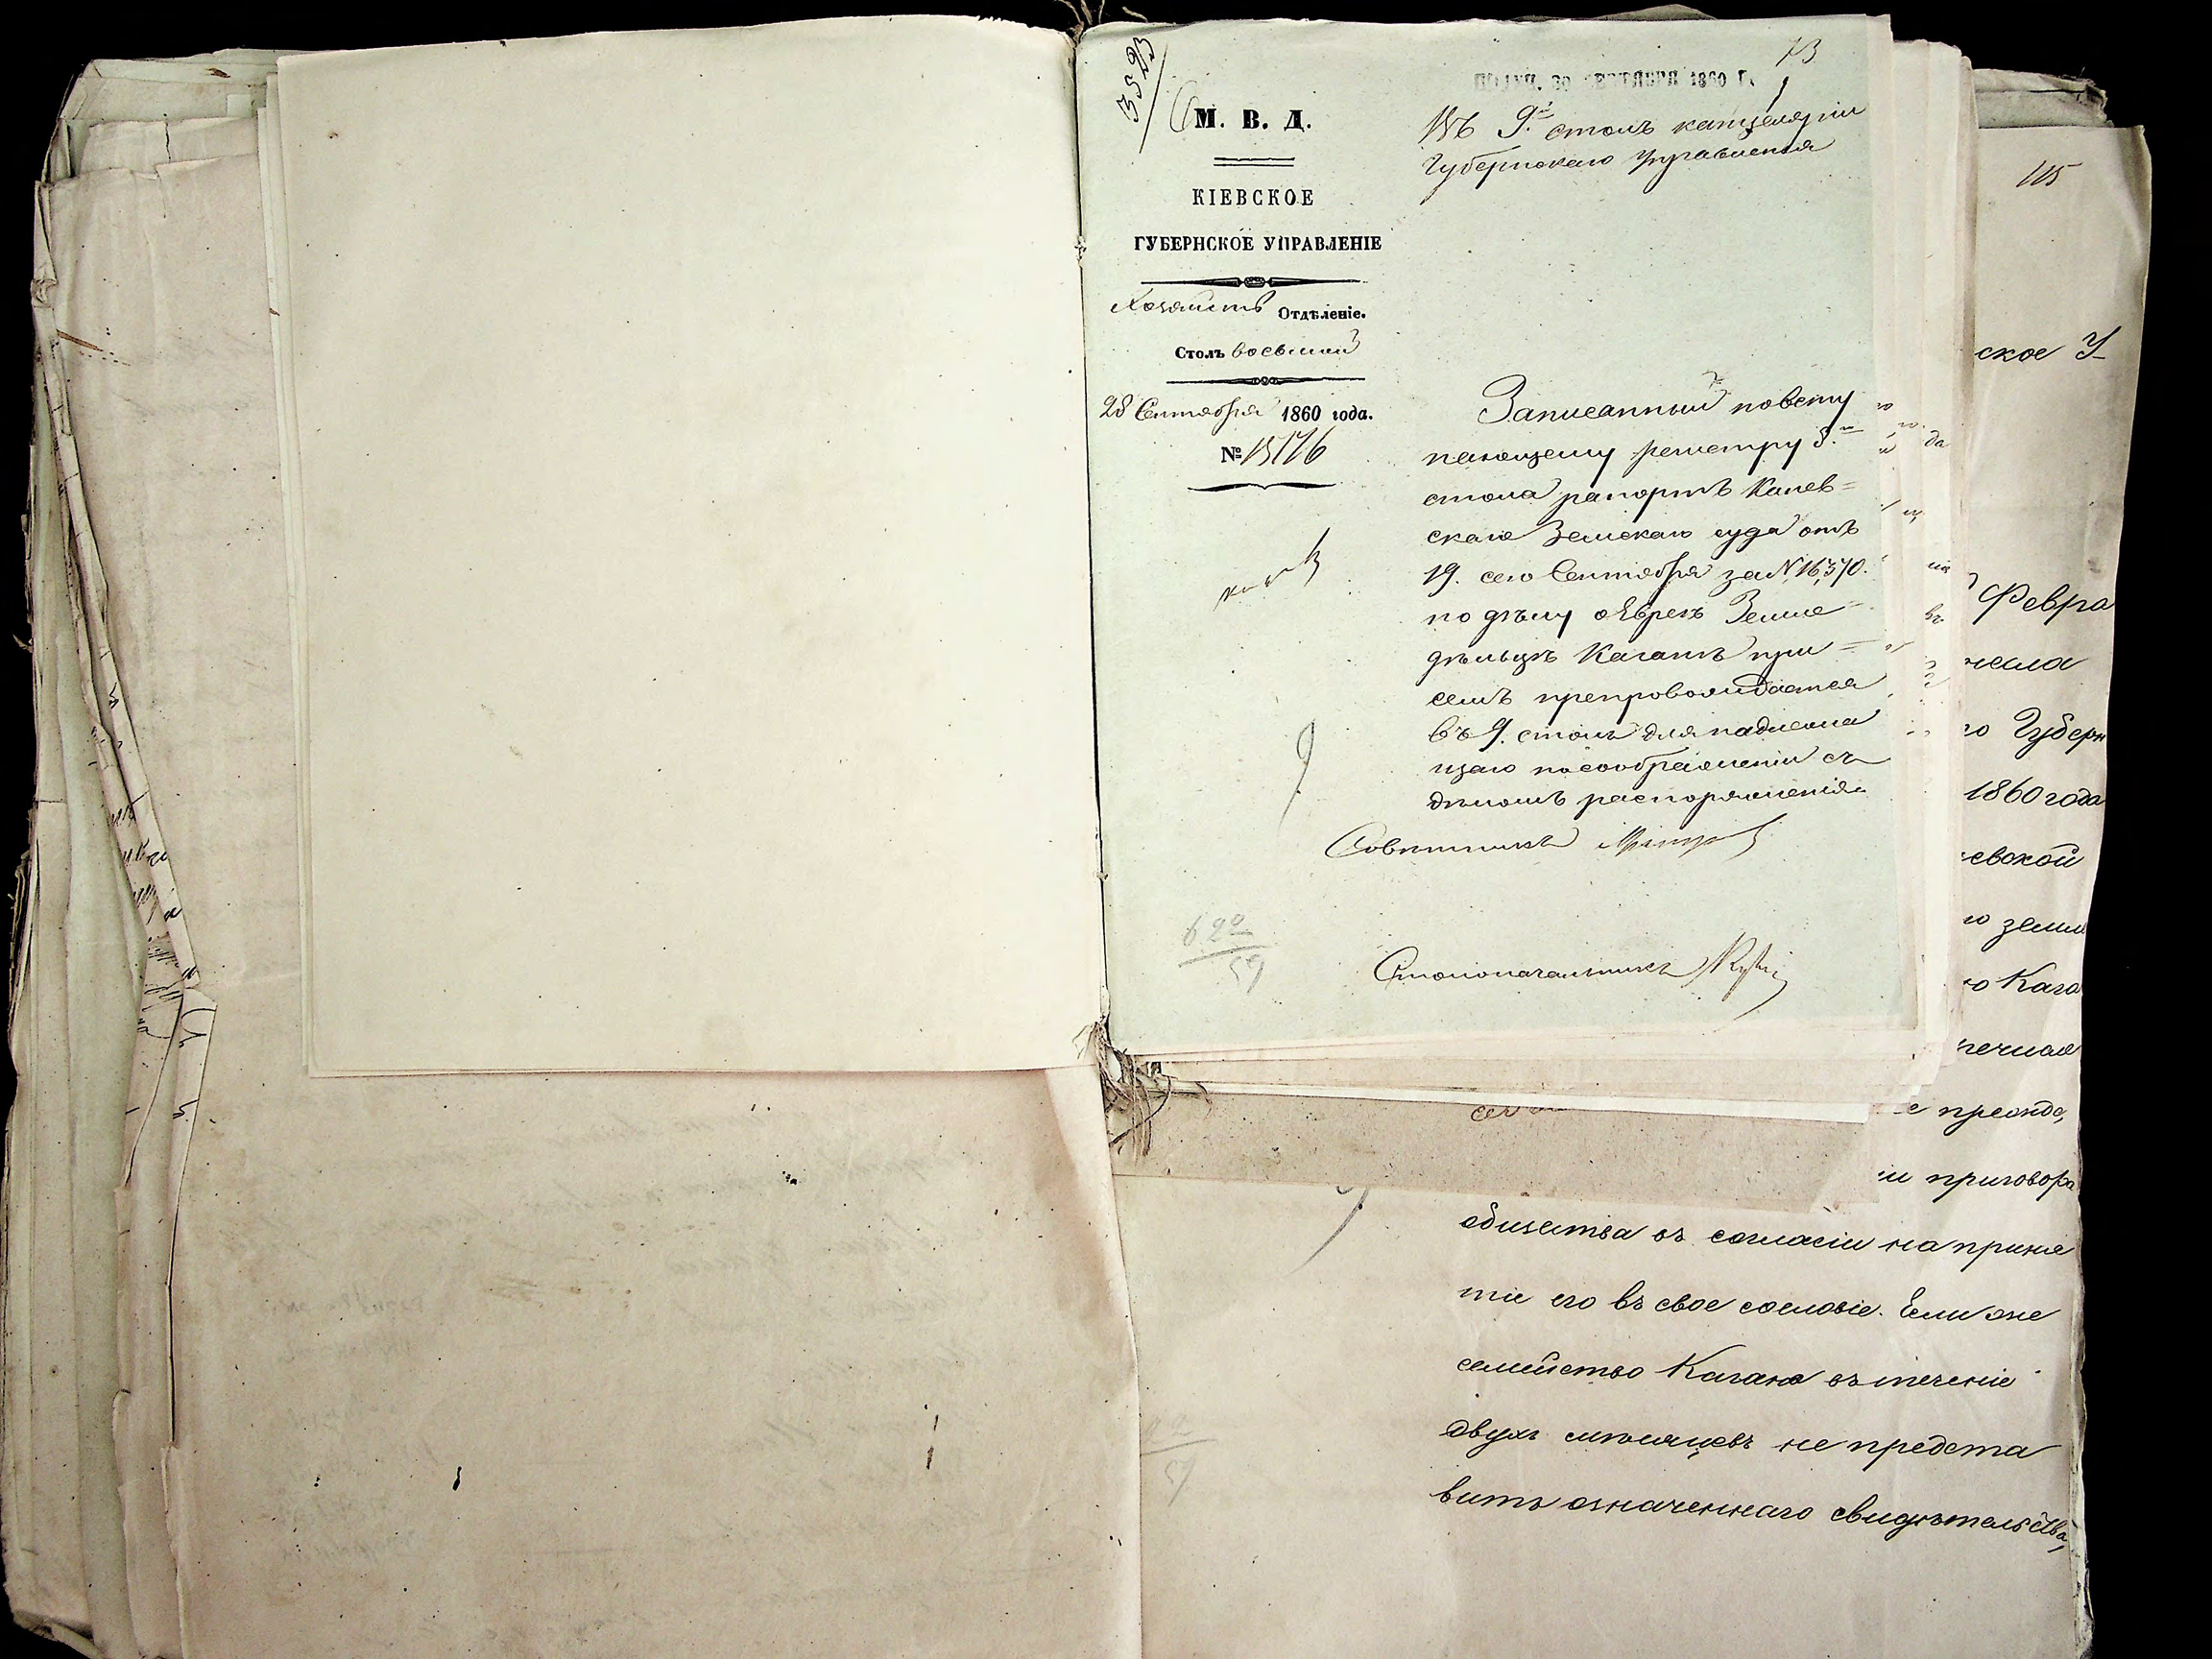 3523
73
М. В. Д.
КІЕВСКОЕ
ГУБЕРНСКОЕ УПРАВЛЕНІЕ
Хозяйств Отдѣленіе.
Столъ восьмый
28 Сентября 1860 года.
№ 15176
Въ 9й столъ канцеляріи
Губернскаго Управленія
Записанный по всту
пающему реестру 8го
стола рапортъ Канев=
скаго Земскаго суда отъ
19. сего Сентября за N 16,370.
по дѣлу о Евреѣ Земле=
дѣльцѣ Каганѣ при=
семъ препровождается
въ 9. столъ для надлежа
щаго по соображеніи съ
дѣломъ распоряженія.
Совѣтникъ
Столоначальникъ
620
59
115
ское У
Февра
Губерн
1860 года
евской
земл
Кага
и приговора
общества въ согласіи на приня
тіе его въ свое сословіе. Если же
семейство Кагана въ теченіе
двухъ мѣсяцевъ не предста
витъ означеннаго свидѣтельства,